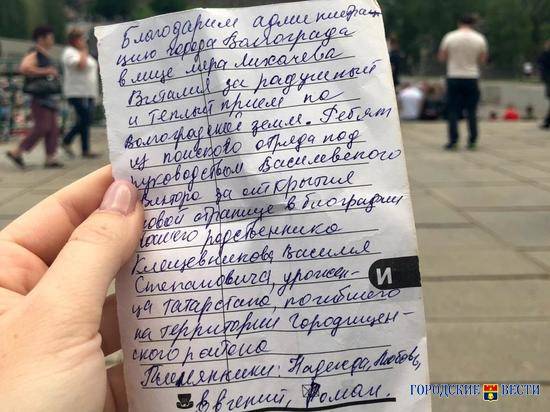 Благодарим администра-
цию города Волгограда
в лице мера Лихачева
Виталия за радушный
и теплый прием по
Волгоградской земле. Ребят
из поисково отряда под
руководством Василевского
Виктора за открытия
новой странице в биографии
нашего родственника
Клещевникова Василия
Степановича, урожен-
ца Татарстана, погибшего
на территории Городищен-
ского района
Племянники: Надежда, Любовь,
Евгений, Роман.
И
ГОРОДСКИЕ ВЕСТИ